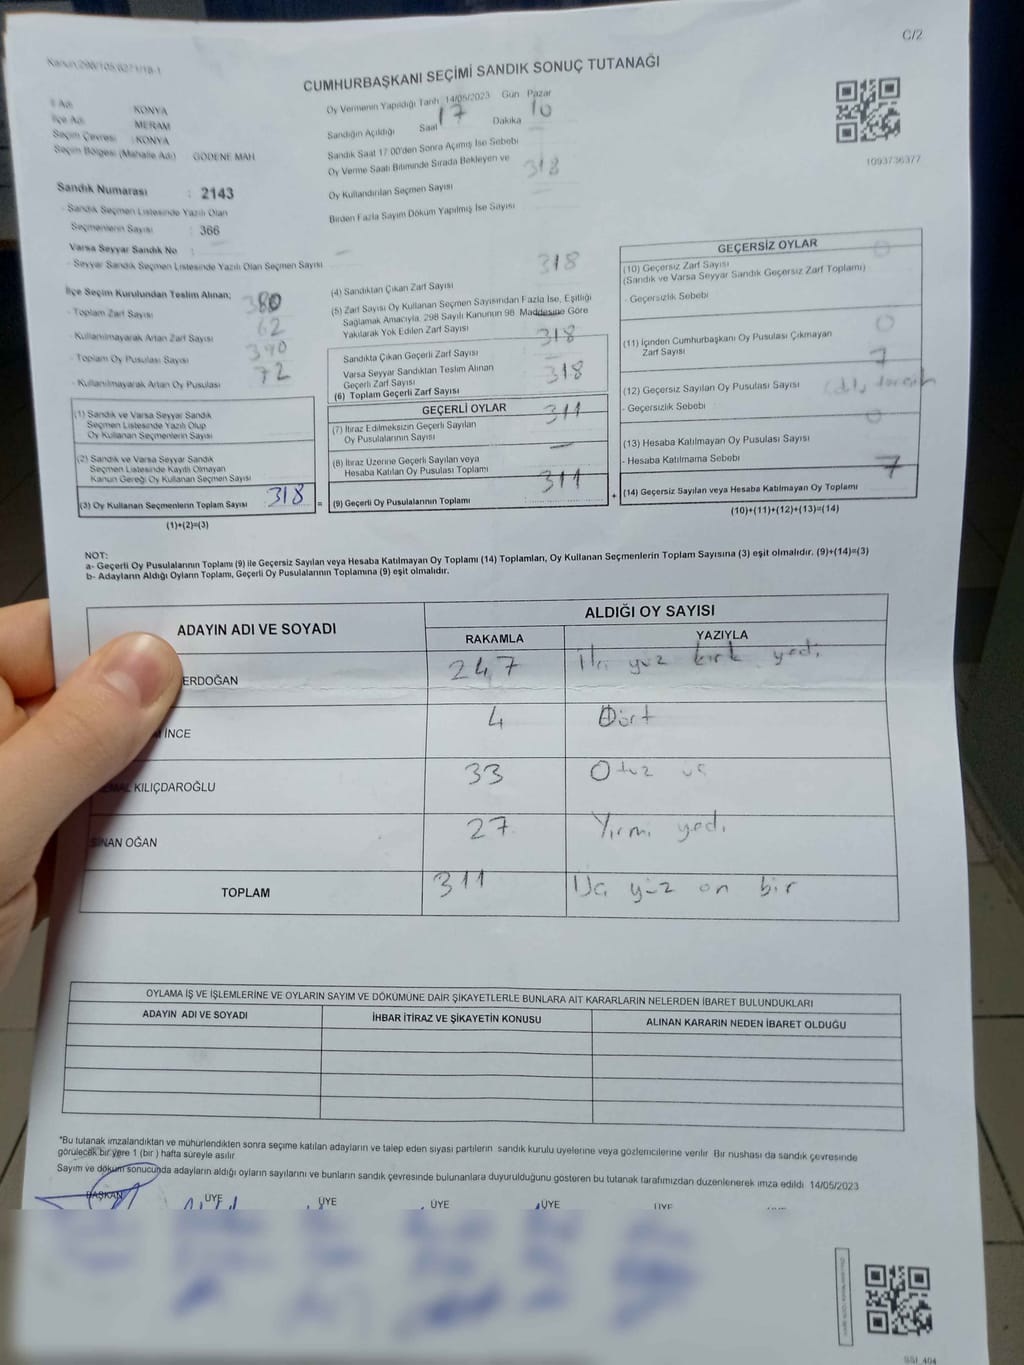 Kanun:298/105,6271/18-1
C/2
CUMHURBAŞKANI SEÇİMİ SANDIK SONUÇ TUTANAĞI
İl Adı KONYA
İlçe Adı MERAM
Seçim Çevresi : KONYA
Seçim Bölgesi (Mahalle Adı) GÖDENE MAH
Oy Vermenin Yapıldığı Tarih 14/05/2023 Gün Pazar
Sandığın Açıldığı Saat 17 Dakika 10
Sandık Saat 17:00'den Sonra Açılmış İse Sebebi
Oy Verme Saati Bitiminde Sırada Bekleyen ve
Oy Kullandırılan Seçmen Sayısı 318
Birden Fazla Sayım Döküm Yapılmış İse Sayısı
1093736377
Sandık Numarası : 2143
- Sandık Seçmen Listesinde Yazılı Olan
Seçmenlerin Sayısı : 366
Varsa Seyyar Sandık No :
- Seyyar Sandık Seçmen Listesinde Yazılı Olan Seçmen Sayısı
İlçe Seçim Kurulundan Teslim Alınan;
- Toplam Zarf Sayısı 380
- Kullanılmayarak Artan Zarf Sayısı 62
- Toplam Oy Pusulası Sayısı 390
- Kullanılmayarak Artan Oy Pusulası 72
(1) Sandık ve Varsa Seyyar Sandık
Seçmen Listesinde Yazılı Olup
Oy Kullanan Seçmenlerin Sayısı
(2) Sandık ve Varsa Seyyar Sandık
Seçmen Listesinde Kayıtlı Olmayan
Kanun Gereği Oy Kullanan Seçmen Sayısı
(3) Oy Kullanan Seçmenlerin Toplam Sayısı 318 =
(1)+(2)=(3)
(4) Sandıktan Çıkan Zarf Sayısı 318
(5) Zarf Sayısı Oy Kullanan Seçmen Sayısından Fazla İse, Eşitliği
Sağlamak Amacıyla, 298 Sayılı Kanunun 98. Maddesine Göre
Yakılarak Yok Edilen Zarf Sayısı
Sandıkta Çıkan Geçerli Zarf Sayısı 318
Varsa Seyyar Sandıktan Teslim Alınan
Geçerli Zarf Sayısı
(6) Toplam Geçerli Zarf Sayısı 318
GEÇERLİ OYLAR
(7) İtiraz Edilmeksizin Geçerli Sayılan
Oy Pusulalarının Sayısı 311
(8) İtiraz Üzerine Geçerli Sayılan veya
Hesaba Katılan Oy Pusulası Toplamı —
(9) Geçerli Oy Pusulalarının Toplamı 311 +
GEÇERSİZ OYLAR
(10) Geçersiz Zarf Sayısı 0
(Sandık ve Varsa Seyyar Sandık Geçersiz Zarf Toplamı)
- Geçersizlik Sebebi
(11) İçinden Cumhurbaşkanı Oy Pusulası Çıkmayan
Zarf Sayısı 0
(12) Geçersiz Sayılan Oy Pusulası Sayısı 7
- Geçersizlik Sebebi
(13) Hesaba Katılmayan Oy Pusulası Sayısı 0
- Hesaba Katılmama Sebebi
(14) Geçersiz Sayılan veya Hesaba Katılmayan Oy Toplamı 7
(10)+(11)+(12)+(13)=(14)
NOT:
a- Geçerli Oy Pusulalarının Toplamı (9) ile Geçersiz Sayılan veya Hesaba Katılmayan Oy Toplamı (14) Toplamları, Oy Kullanan Seçmenlerin Toplam Sayısına (3) eşit olmalıdır. (9)+(14)=(3)
b- Adayların Aldığı Oyların Toplamı, Geçerli Oy Pusulalarının Toplamına (9) eşit olmalıdır.
ADAYIN ADI VE SOYADI
ALDIĞI OY SAYISI
RAKAMLA YAZIYLA
ERDOĞAN 247 İki yüz kırk yedi
İNCE 4 Dört
KILIÇDAROĞLU 33 Otuz üç
SİNAN OĞAN 27 Yirmi yedi
TOPLAM 311 Üç yüz on bir
OYLAMA İŞ VE İŞLEMLERİNE VE OYLARIN SAYIM VE DÖKÜMÜNE DAİR ŞİKAYETLERLE BUNLARA AİT KARARLARIN NELERDEN İBARET BULUNDUKLARI
ADAYIN ADI VE SOYADI İHBAR İTİRAZ VE ŞİKAYETİN KONUSU ALINAN KARARIN NEDEN İBARET OLDUĞU
*Bu tutanak imzalandıktan ve mühürlendikten sonra seçime katılan adayların ve talep eden siyasi partilerin sandık kurulu üyelerine veya gözlemcilerine verilir. Bir nushası da sandık çevresinde
görülecek bir yere 1 (bir ) hafta süreyle asılır.
Sayım ve döküm sonucunda adayların aldığı oyların sayılarını ve bunların sandık çevresinde bulunanlara duyurulduğunu gösteren bu tutanak tarafımızdan düzenlenerek imza edildi. 14/05/2023
BAŞKAN ÜYE ÜYE ÜYE ÜYE ÜYE